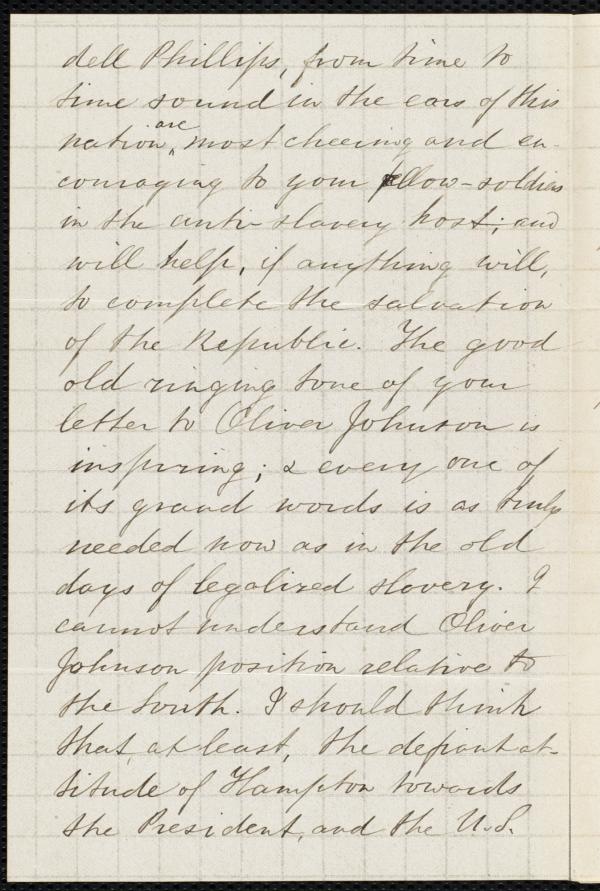 dell Phillips, from time to
time sound in the ears of this
nation, are most cheering and en-
couraging to your fellow-soldiers
in the anti-slavery host; and
will help, if anything will,
to complete the salvation
of the Republic. The good
old ringing tone of your
letter to Oliver Johnson is
inspiring; & every one of
its grand words is as truly
needed now as in the old
days of legalized slavery. I
cannot understand Oliver
Johnson position relative to
the South. I should think
that, at least, the defiant at-
titude of Hampton towards
the President, and the U.S.